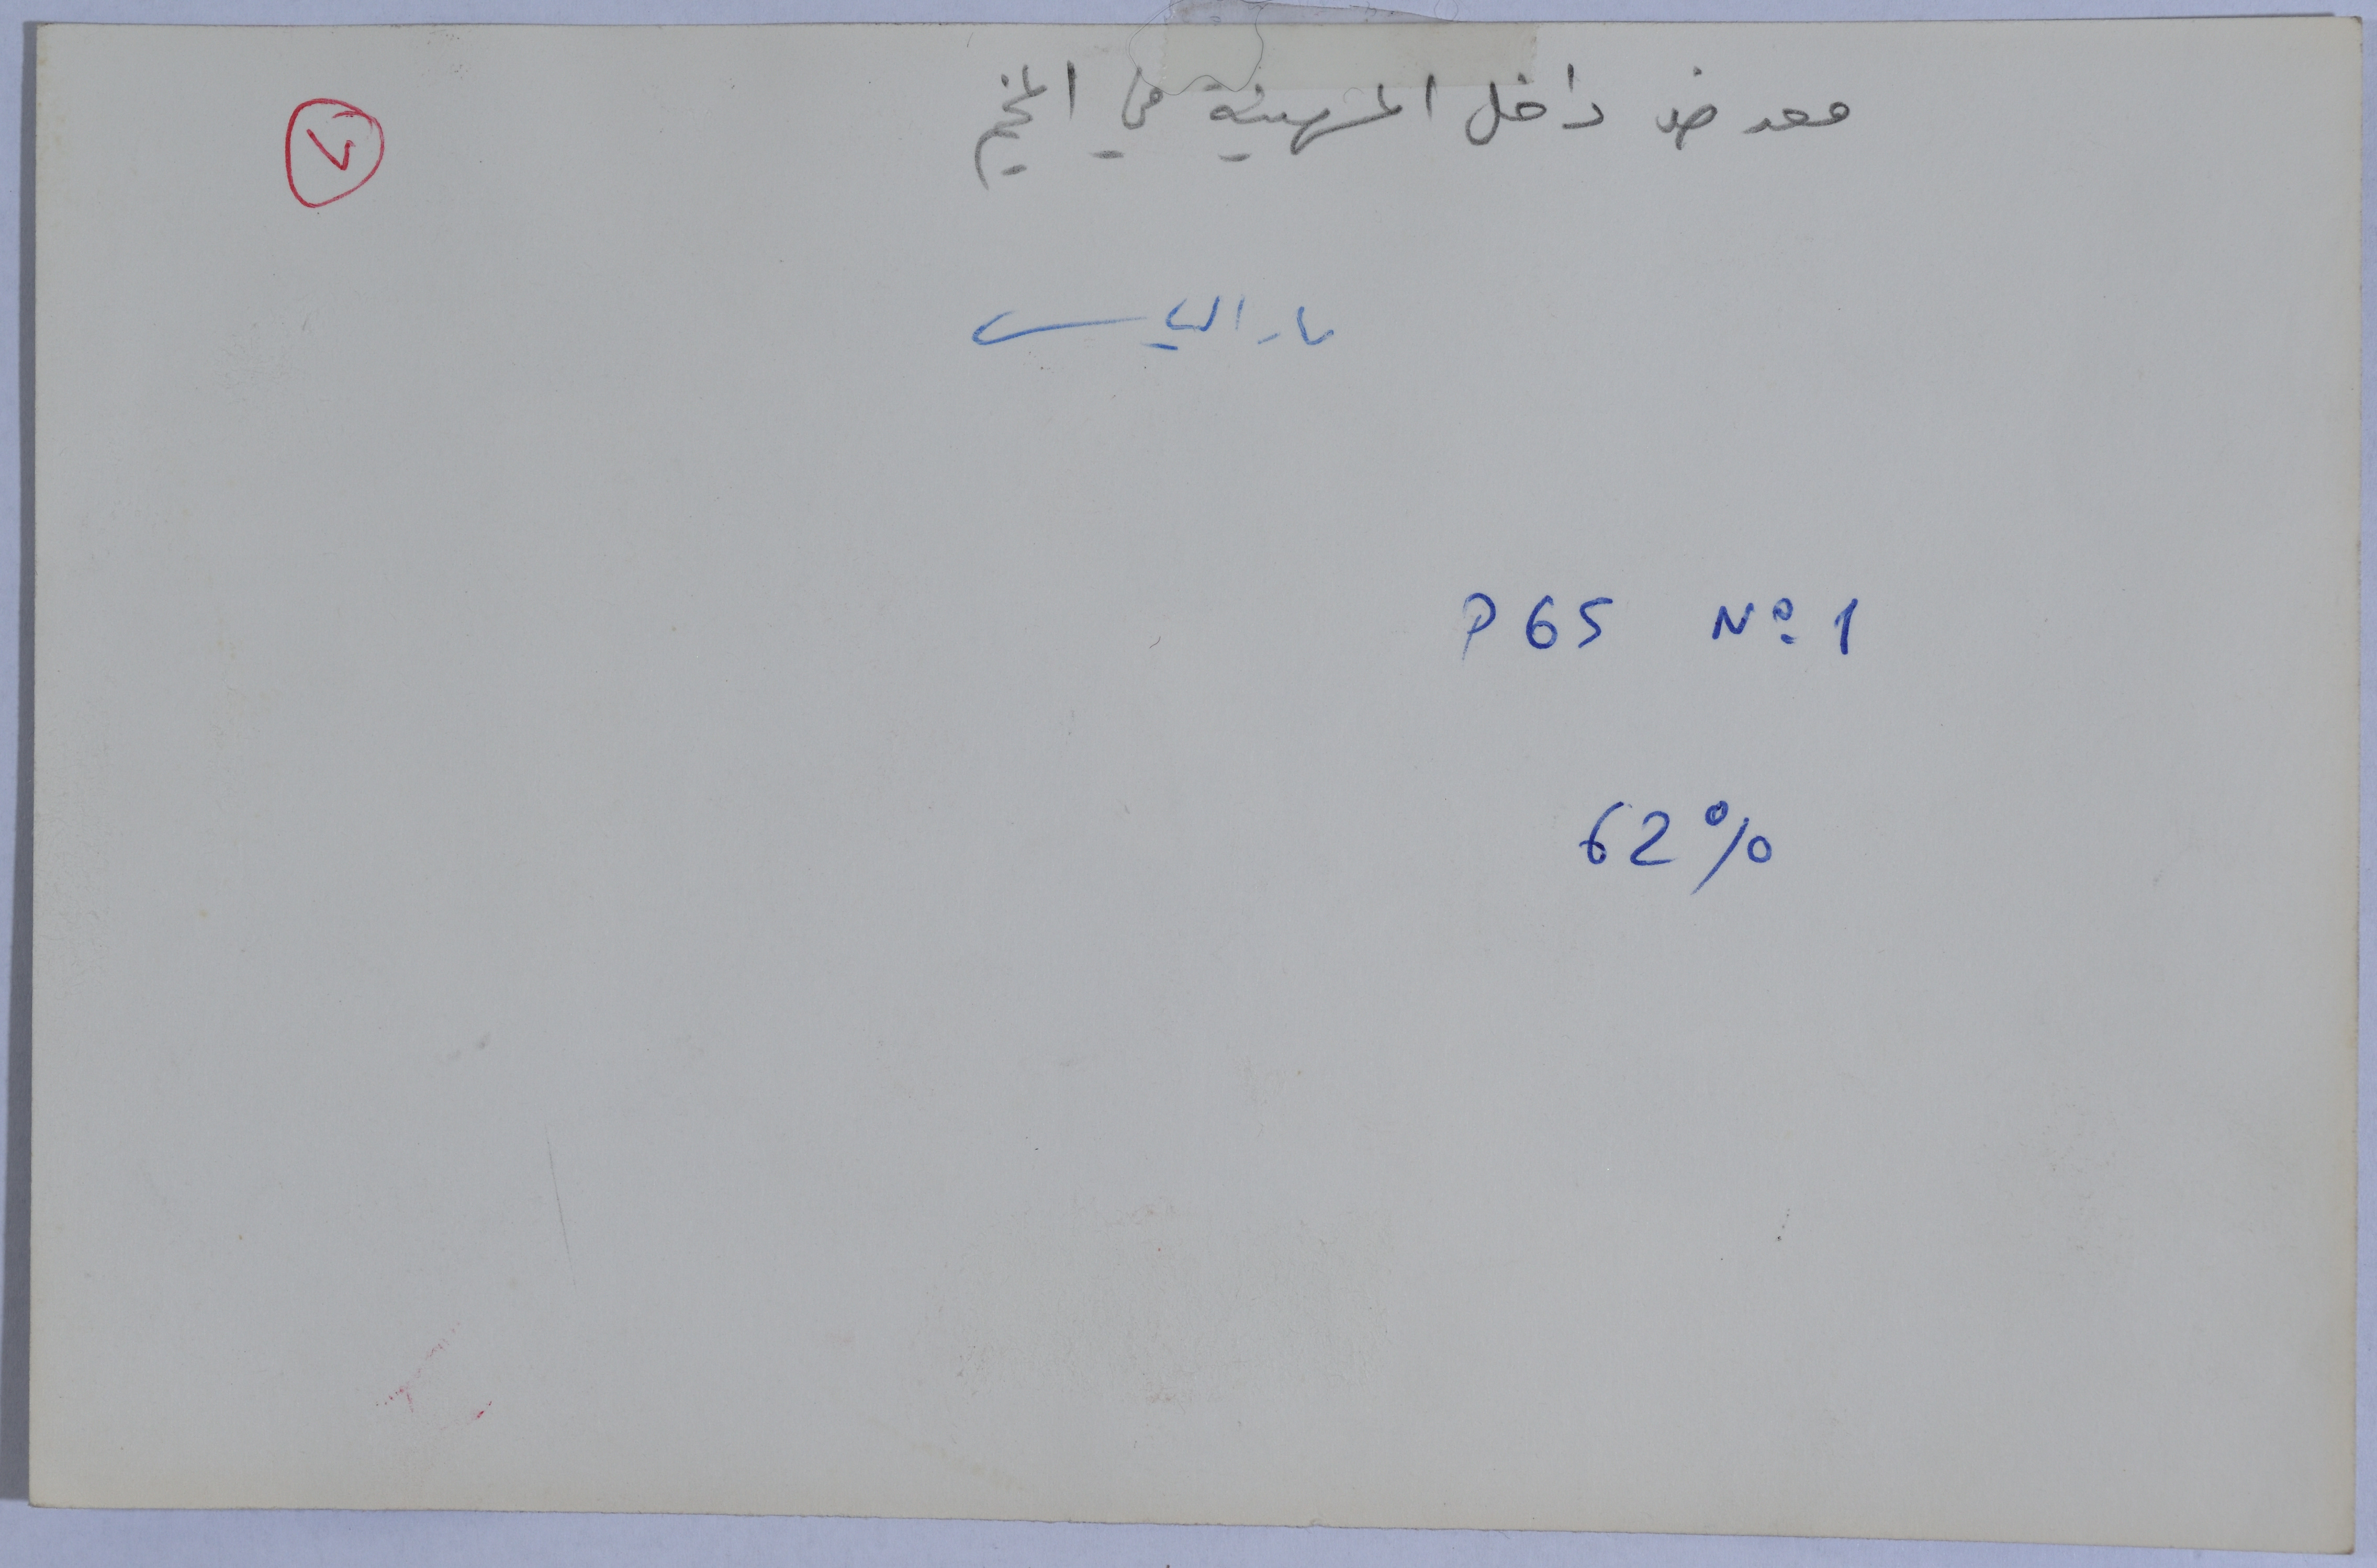 معرض داخل المهنية في المخيم
٧
مار الياس
P 65 Nº 1
62%